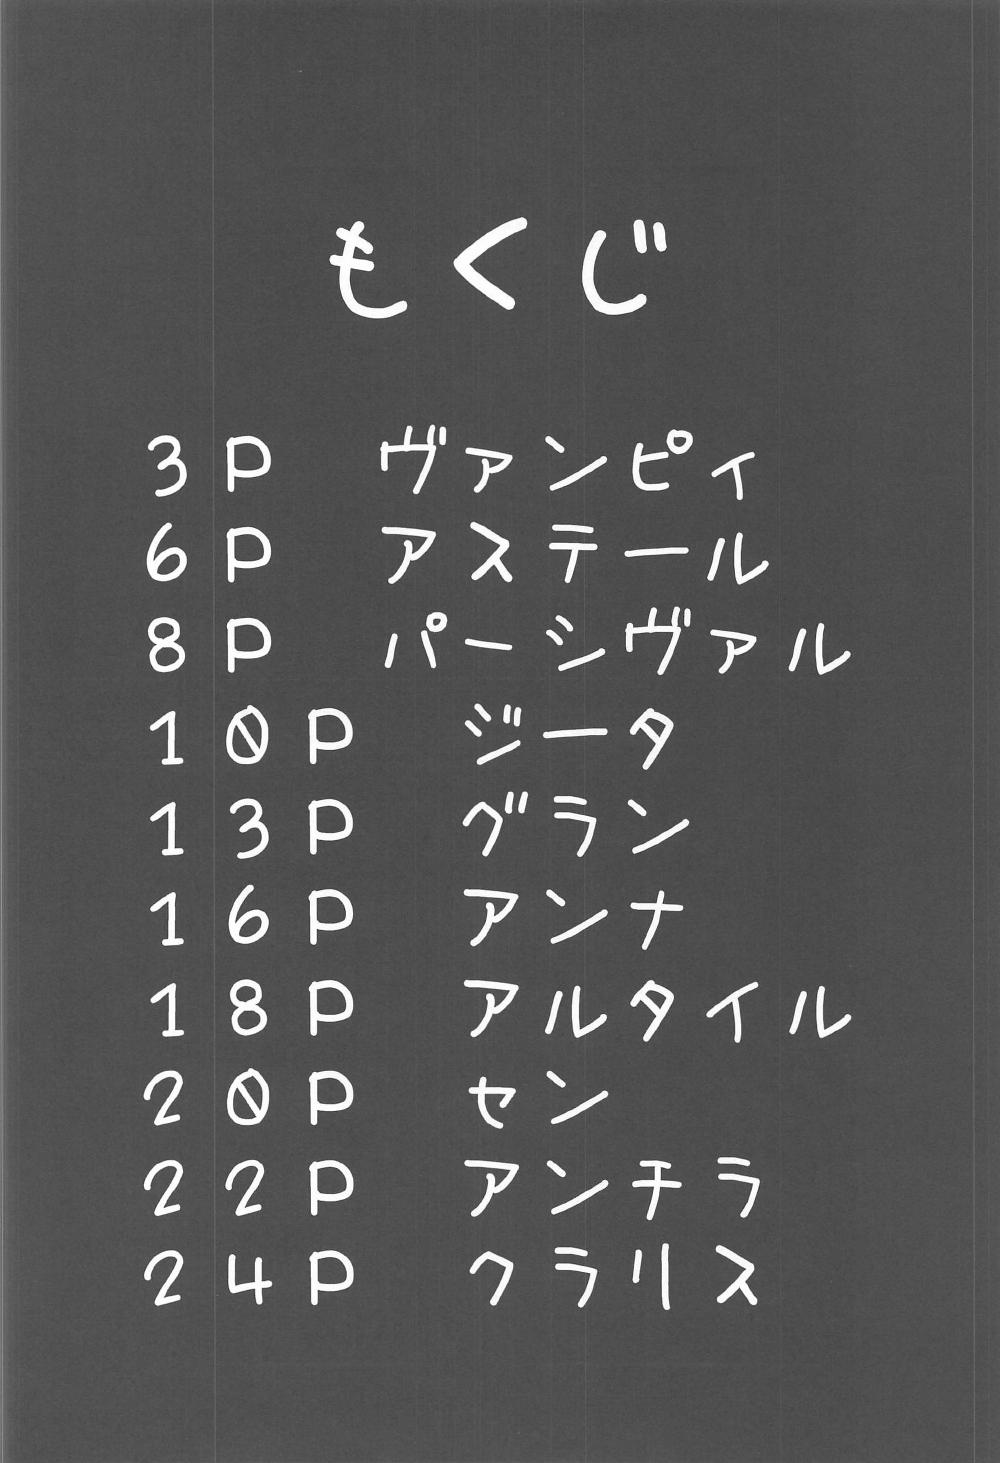 もくじ
3P ヴァンピィ
6P アステール
8P パーシヴァル
10P ジータ
13P グラン
16P アンナ
18P アルタイル
20P セン
22P アンチラ
24P クラリス